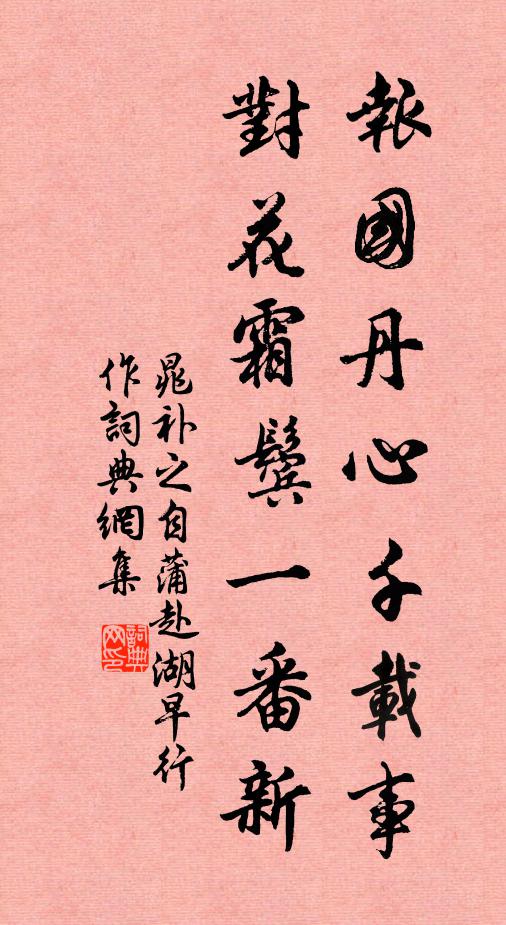 報國丹心千載事
對花霜鬢一番新
晁補之自蒲赴湖早行
作詞典網集
詞典
网印